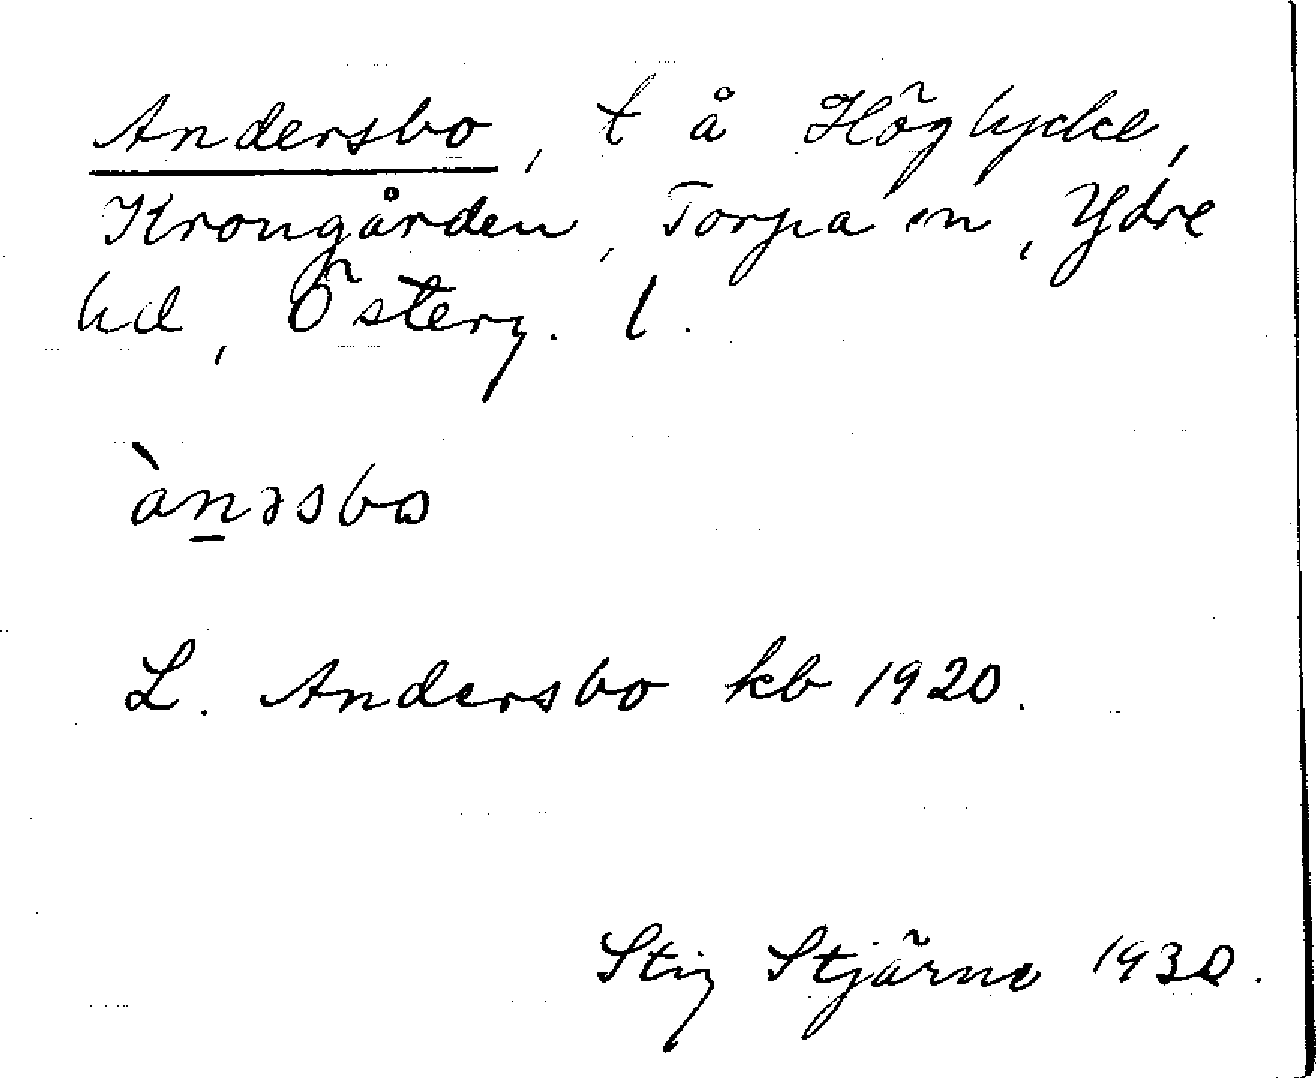 Andersbo, t å Höglycke,
Krongården, Torpa sn, Ydre
hd, Österg. l.
ànəsbo
L. Andersbo kb 1920.
Stig Stjärne 1930.